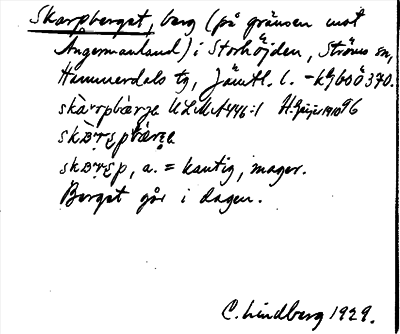 Skarpberget, berg (på gränsen mot
Ångermanland) i Storhöjden, Ströms sn,
Hammerdals tg, Jämtl. l. -
skàrpbærje ULMA 446:1 H. Geijer 1910 96
skarpbærje
skarp, a. = kantig, mager.
Berget går i dagen.
C. Lindberg 1929.